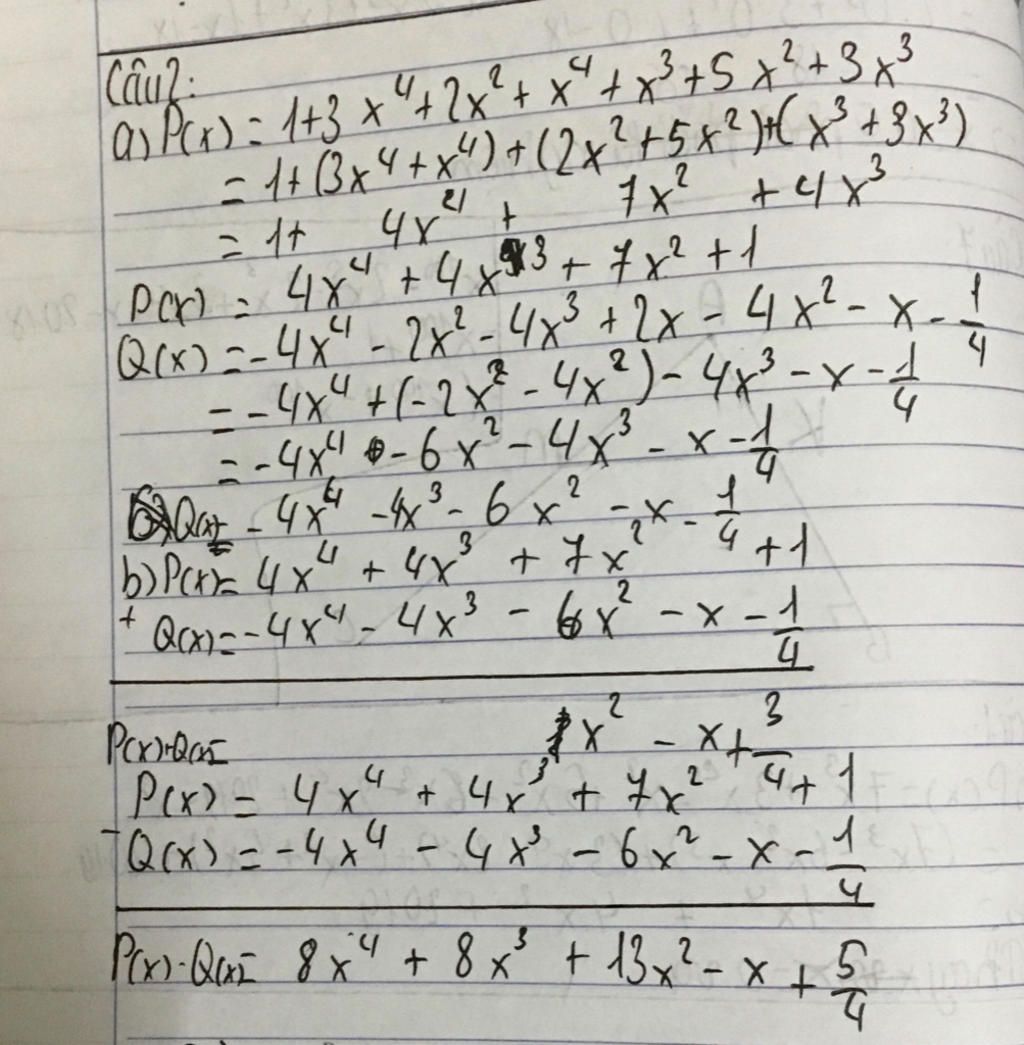 Câu2:
a) P(x) = 1+3x⁴+2x²+x⁴+x³+5x²+3x³
= 1+(3x⁴+x⁴)+(2x²+5x²)+(x³+3x³)
= 1+ 4x⁴ + 7x² + 4x³
P(x) = 4x⁴ + 4x³ + 7x² + 1
Q(x) = -4x⁴ - 2x² - 4x³ + 2x - 4x² - x - 1/4
= -4x⁴ + (-2x² - 4x²) - 4x³ - x - 1/4
= -4x⁴ - 6x² - 4x³ - x - 1/4
Q(x)= -4x⁴ -4x³ - 6x² - x - 1/4
b) P(x)= 4x⁴ + 4x³ + 7x² + 1
+ Q(x)= -4x⁴ - 4x³ - 6x² - x - 1/4
P(x)+Q(x)= 1x² - x + 3/4
P(x) = 4x⁴ + 4x³ + 7x² + 1
- Q(x) = -4x⁴ - 4x³ - 6x² - x - 1/4
P(x)-Q(x)= 8x⁴ + 8x³ + 13x² - x + 5/4